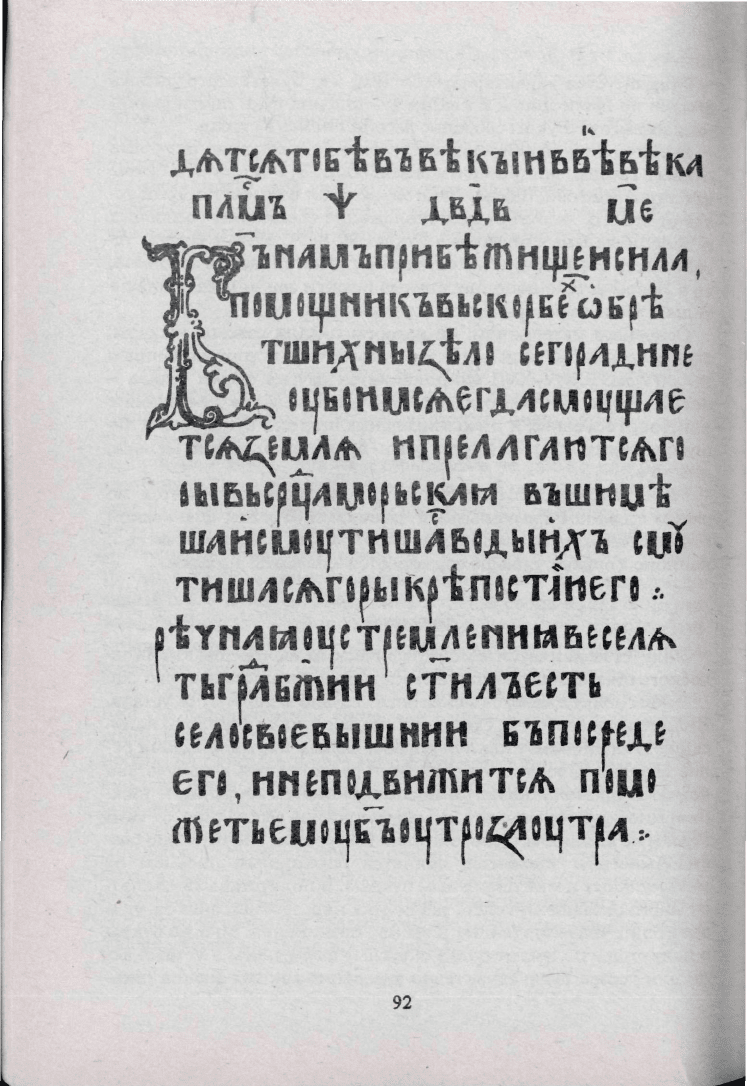 дѧтсѧтобѣвъвѣкыивъвѣⷦ҇вѣка
плⷭ҇мъ ѱ дв҃дв м҃є
Б҃ънамъприбѣжищеисила,
помощникъвьскорбеⷯ҇ѡбрѣ
тшихꙁныѕѣло сегорадине
оубоимсѧєгдасмоущає
тсѧꙁемлѧ ипрелагаютсѧго
рывьср҃цаморьскаꙗ въшꙋмѣ
шаⷭ҇исмоутишаⷭ҇водыихъ смоу
тишасѧгорыкрѣпостїиєго ⁖
рѣчнаꙗоустремлениꙗвеселѧ
тьграⷣб҃жии ст҃илъєсть
селосвоєвышнии бъпосреде
єго, инеподвижитсѧ помо
жетьємоуб҃ъоутроꙁаоутра ⁖
92